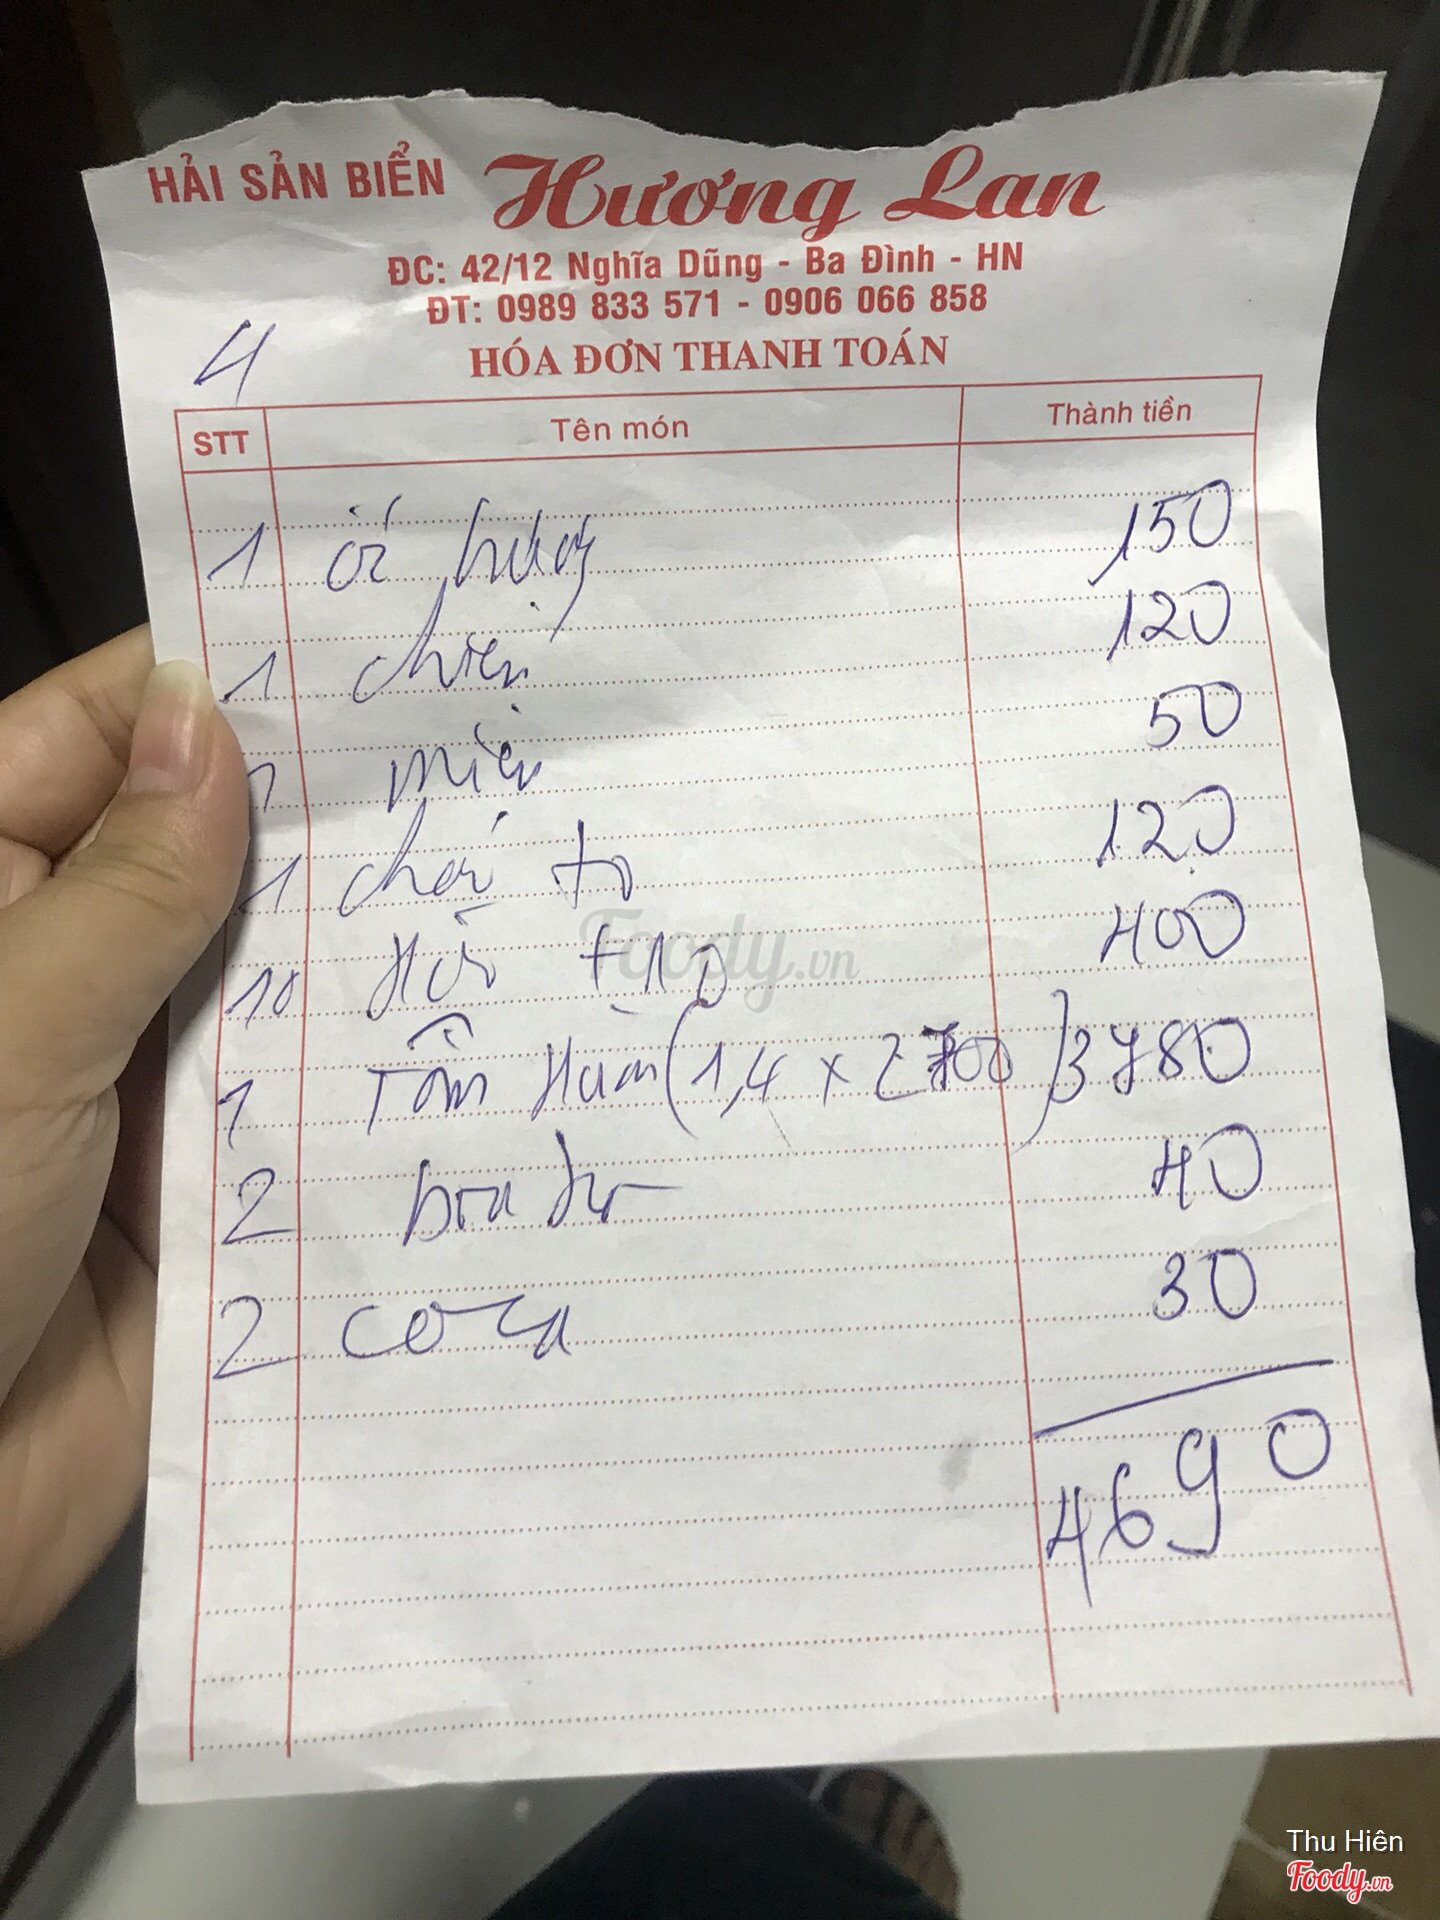 HẢI SẢN BIỂN Hương Lan
ĐC: 42/12 Nghĩa Dũng - Ba Đình - HN
ĐT: 0989 833 571 - 0906 066 858
HÓA ĐƠN THANH TOÁN
4
STT Tên món Thành tiền
1 ốc hương 150
1 chiên 120
1 miến 50
1 cháo to 120
10 Hàu 400
1 Tôm Hùm (1,4 x 2700) 3780
2 bia 40
2 coca 30
4690
Foody.vn
Thu Hiên
Foody.vn